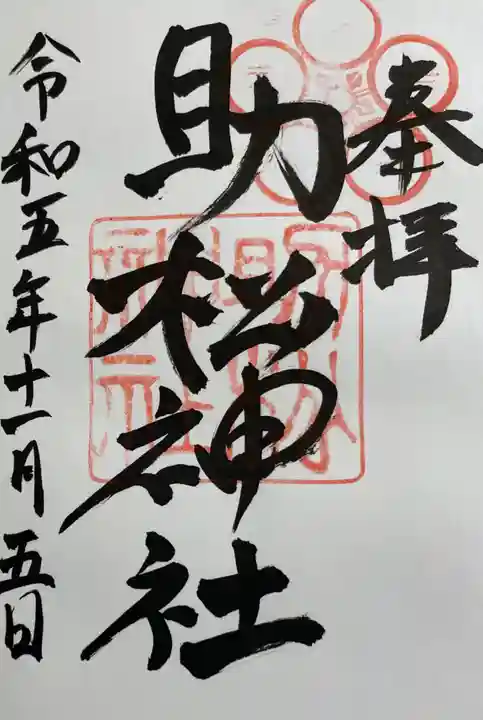 奉拝
助松神社
令和五年十一月五日